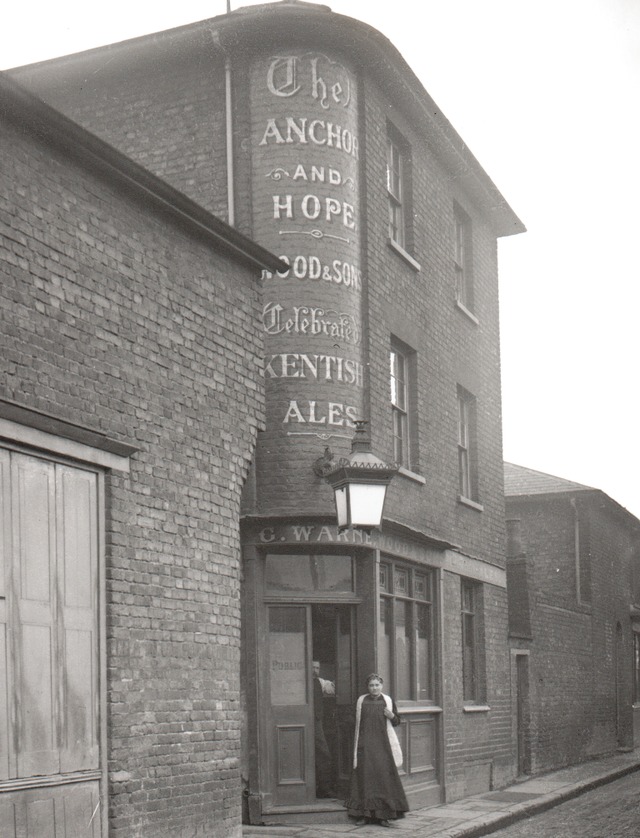 The
ANCHOR
AND
HOPE
WOOD & SONS
Celebrated
KENTISH
ALES
G. WARNE
PUBLIC